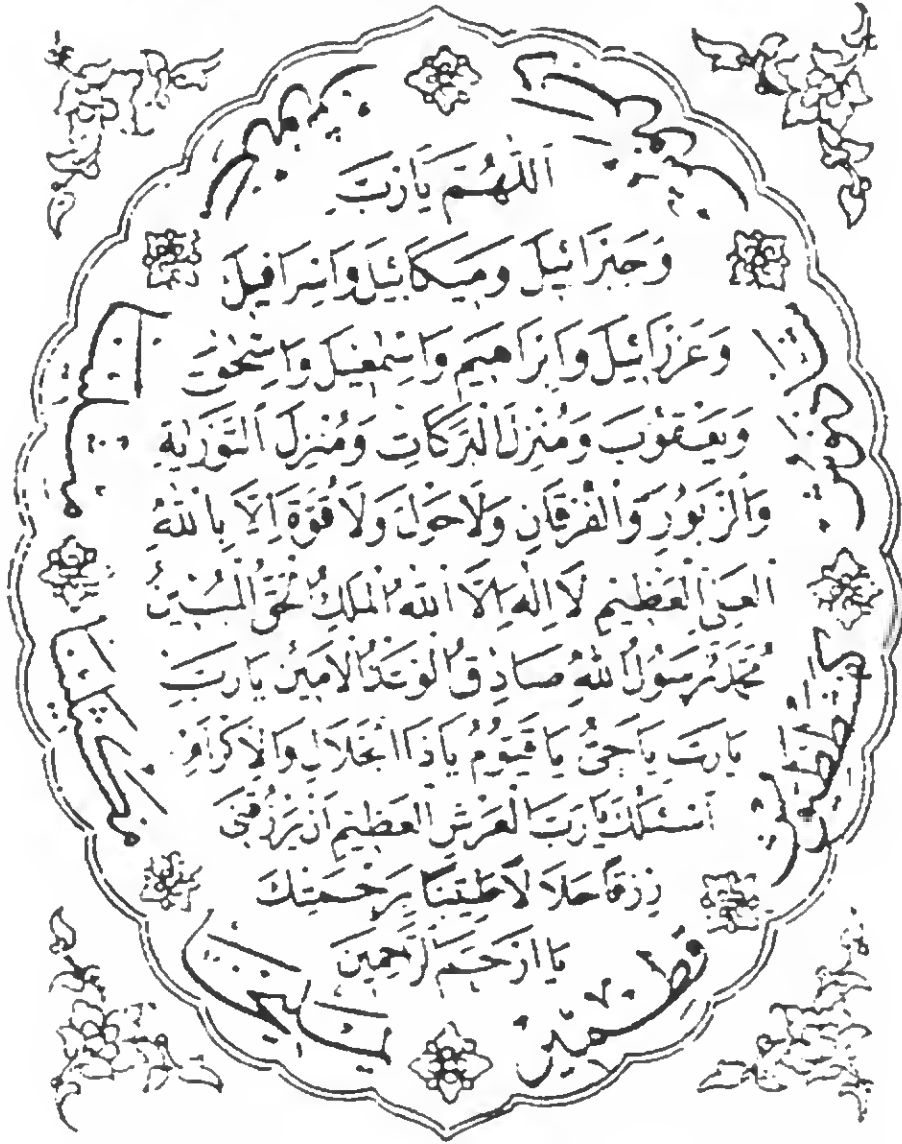 اَللّٰهُمَّ يَا رَبَّ
وَجَبْرَائِيلَ وَمِيكَائِيلَ وَاِسْرَافِيلَ
وَعَزْرَائِيلَ وَاِبْرَاهِيمَ وَاِسْمٰعِيلَ وَاِسْحٰقَ
وَيَعْقُوبَ وَمُنْزِلَ الْبَرَكَاتِ وَمُنْزِلَ التَّوْرٰيةِ
وَالزَّبُورِ وَالْفُرْقَانِ وَلَا حَوْلَ وَلَا قُوَّةَ اِلَّا بِاللّٰهِ
الْعَلِىِّ الْعَظِيمِ لَا اِلٰهَ اِلَّا اللّٰهُ الْمَلِكُ الْحَقُّ الْمُبِينُ
مُحَمَّدٌ رَسُولُ اللّٰهِ صَادِقُ الْوَعْدُ الْاَمِينُ يَا رَبِّ
يَا رَبِّ يَا حَىُّ يَا قَيُّومُ يَا ذَا الْجَلَالِ وَالْاِكْرَامِ
اَسْئَلُكَ يَا رَبَّ الْعَرْشِ الْعَظِيمِ اَنْ يَرْزُقَنِى
رِزْقًا حَلَالًا طَيِّبًا بِرَحْمَتِكَ
يَا اَرْحَمَ الرَّاحِمِينَ
قطمير